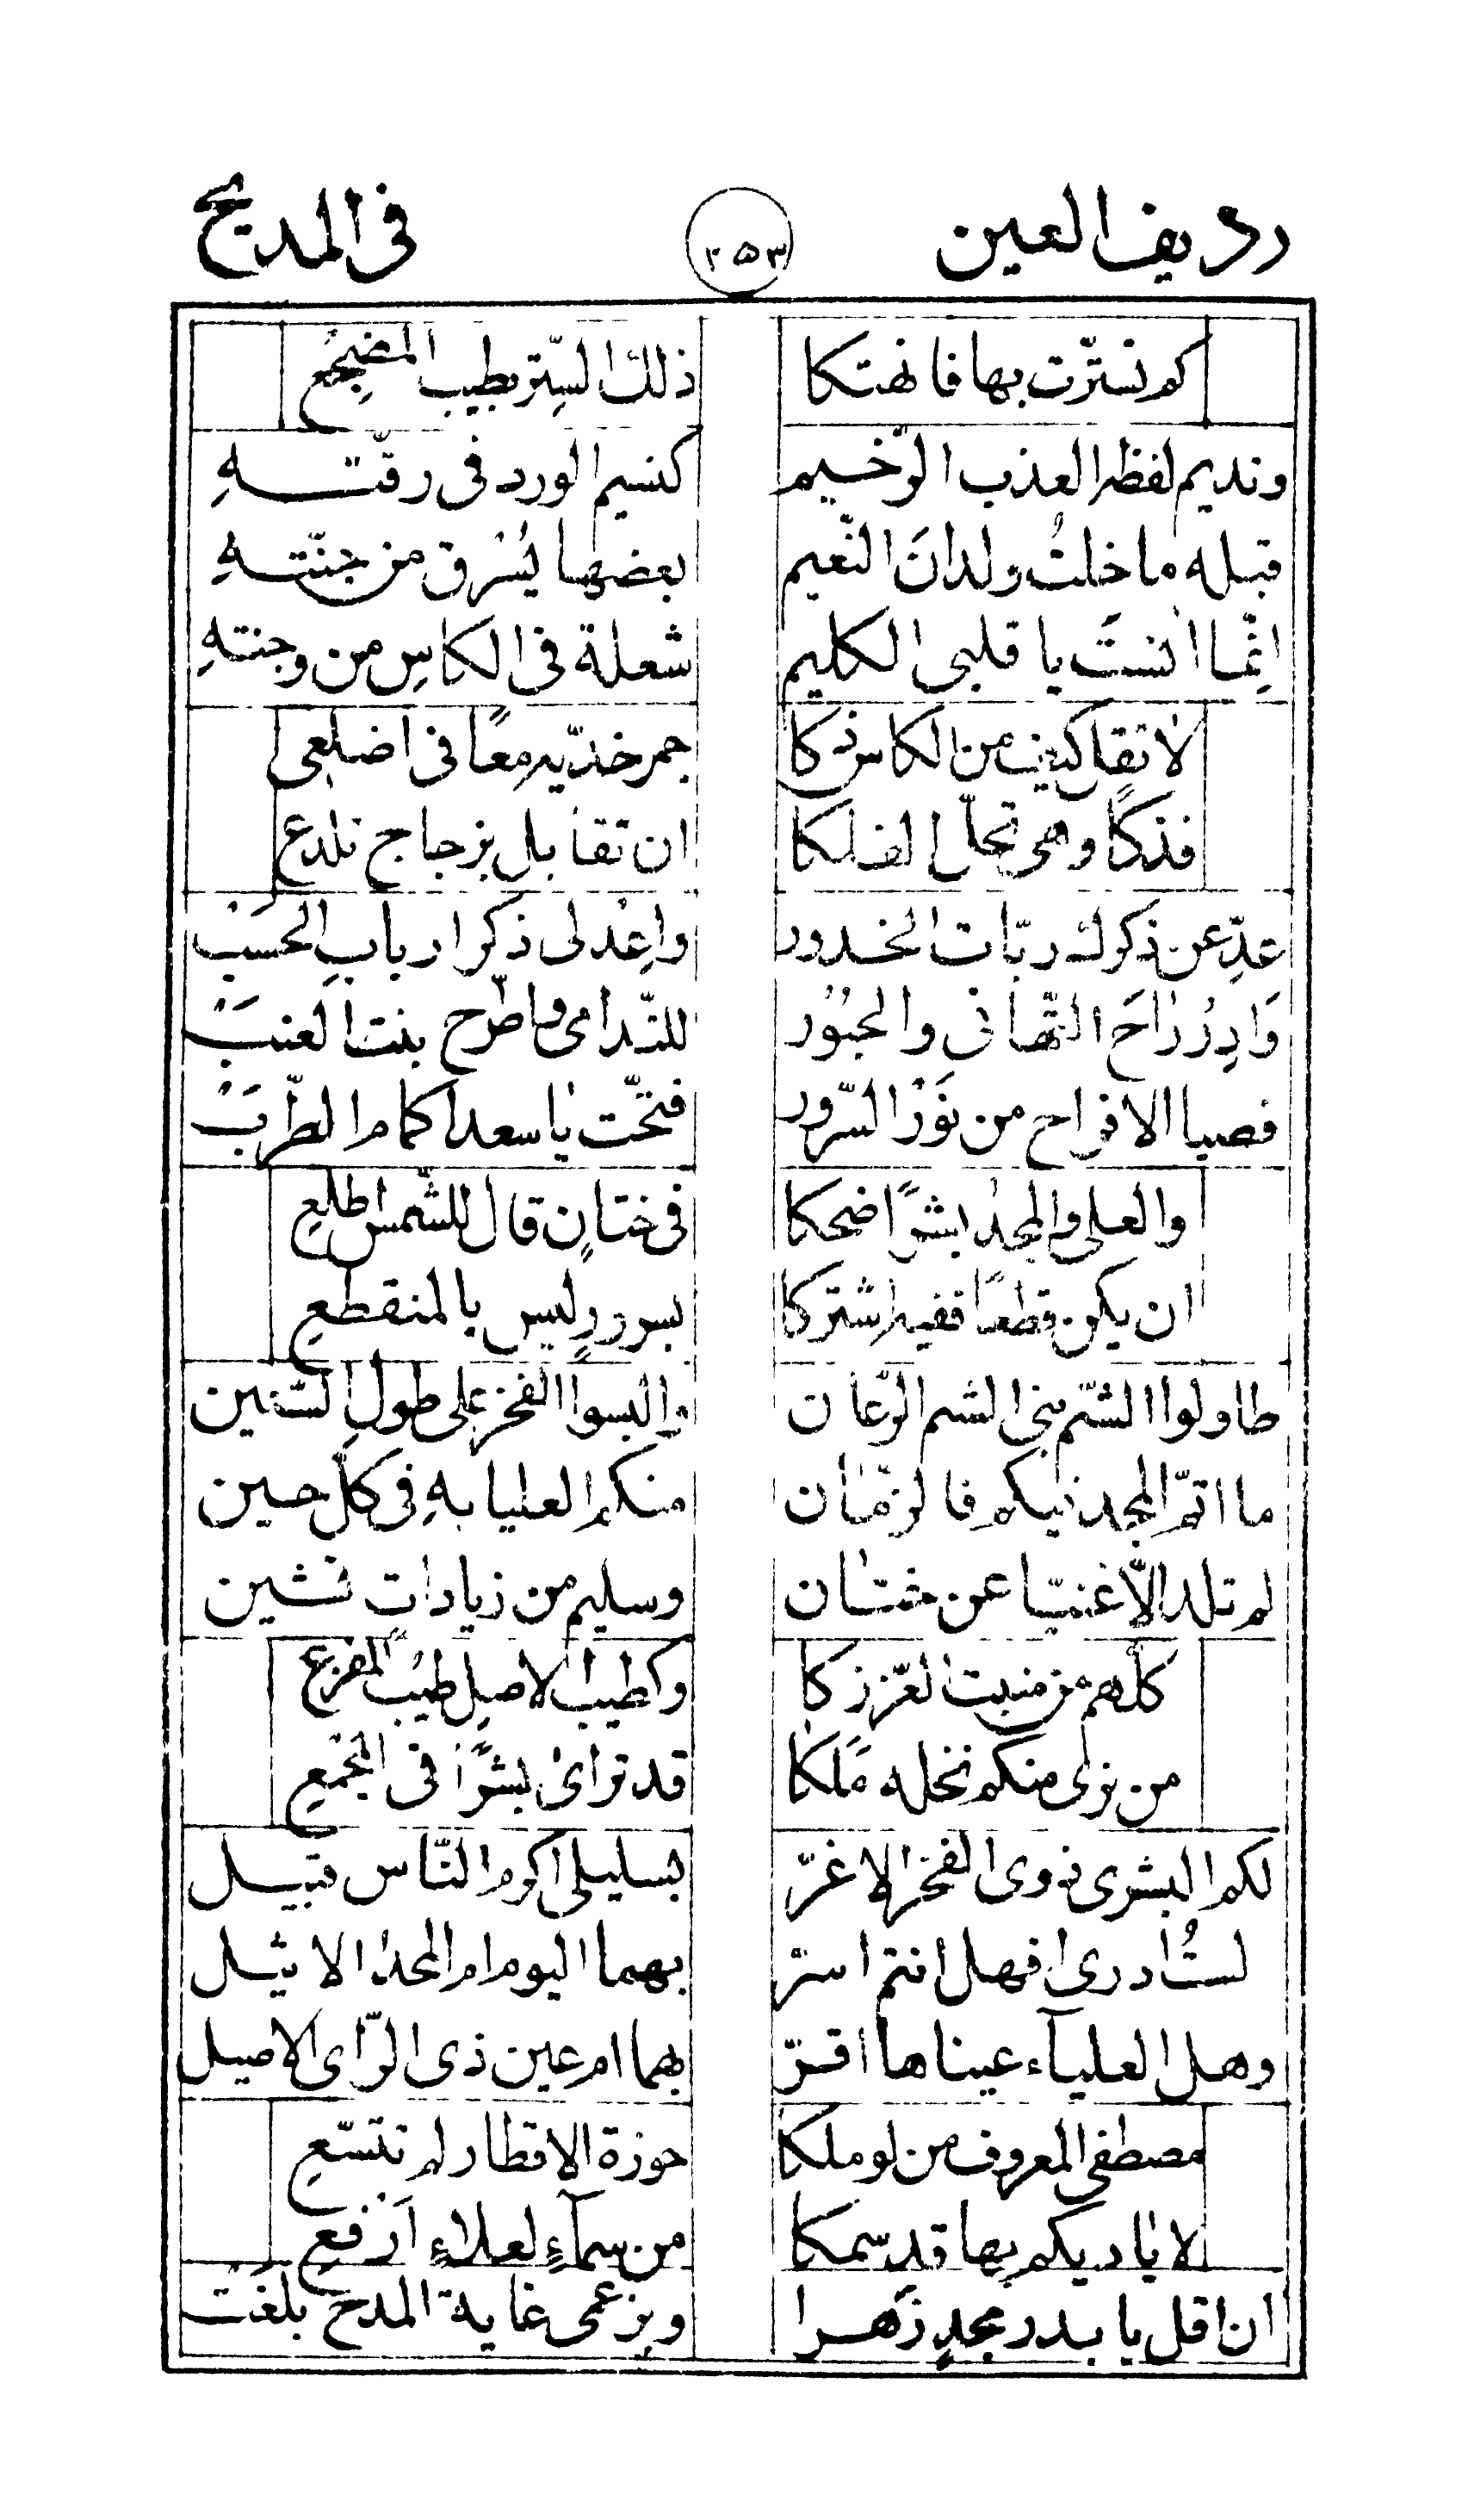 رديف العين ٢٥٣ في المديح
كم تستّرت بها فانهتكا ذلك السِتر بطيب المضجِع
ونديم لفظه العذب الرّخيم كنسيم الورد في رقّتهِ
قبله ما خلتُ ولدانَ النّعيم بعضها يُسْرق من جنّتهِ
انّما انستَ يا قلبى الكليم شعلة في الكاسِ من وجنتهِ
لا تقل كيف من الكاس ذكا جمر خدّيهِ معًا في اضلعى
فذكًا وهى تحلّ الفلكا ان تقابل بزجاج تلدع
عدِّ عن ذكرك ربّات الخدور واعِدْ لى ذكر اربابِ الحَسَبْ
وَادِرْ رَاحَ التّهانى والحبُوُر للنّدامى واطّرح بنت العنَبْ
فصبا الافراح من نَوْر السّرور فتحّت يا سعد اكمام الطّرَبْ
والعلى والمجدُ بشرًا ضحكا في ختانٍ قال للشّمس اطلعِ
ان يكن قطعًا ففيه اشتركا بسرورٍ ليس بالمنقطعِ
طاولوا الشّم بنى الشم الرّعان والبسوا الفخر على طولِ السّنين
ما اتمّ المجد فيكم فالزمّان منكم العليا بهِ في كلّ حين
لم تلد الّا غنيّا عن ختان وسليم من زياداتٍ تشين
كلّهم من منبت العزّ زكا وكطيب الاصلِ طيبُ المفرع
من نرى منكم نخله مَلَكا قد ترائ بشرًا في المجمعِ
لكم البشرى ذوى الفخر الاغرّ بسليلى اكرم النّاس قبيل
لستُ ادرى افهل انتم اسرّ بهما اليوم ام المجدُ الاثيل
وهل العليآء عيناها اقرّ بهما ام عين ذى الرّاى الاصيل
مصطفى المعروف من لو ملكا حوزة الاقطار لم تتسّعِ
لاياديكم بها قد سمكا من سمآءٍ لعلاءٍ ارْفعِ
ان اقل يا بدر مجدٍ زَهرا وبزعمى غاية المدح بلغَتْ